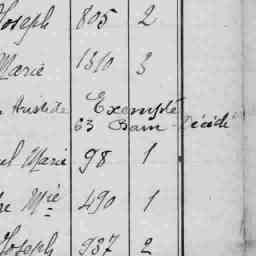 Joseph 805 2
Marie 1310 3
Aristide Exempté
63 Bain Décédé
Marie 98 1
Mie 490 1
Joseph 937 2